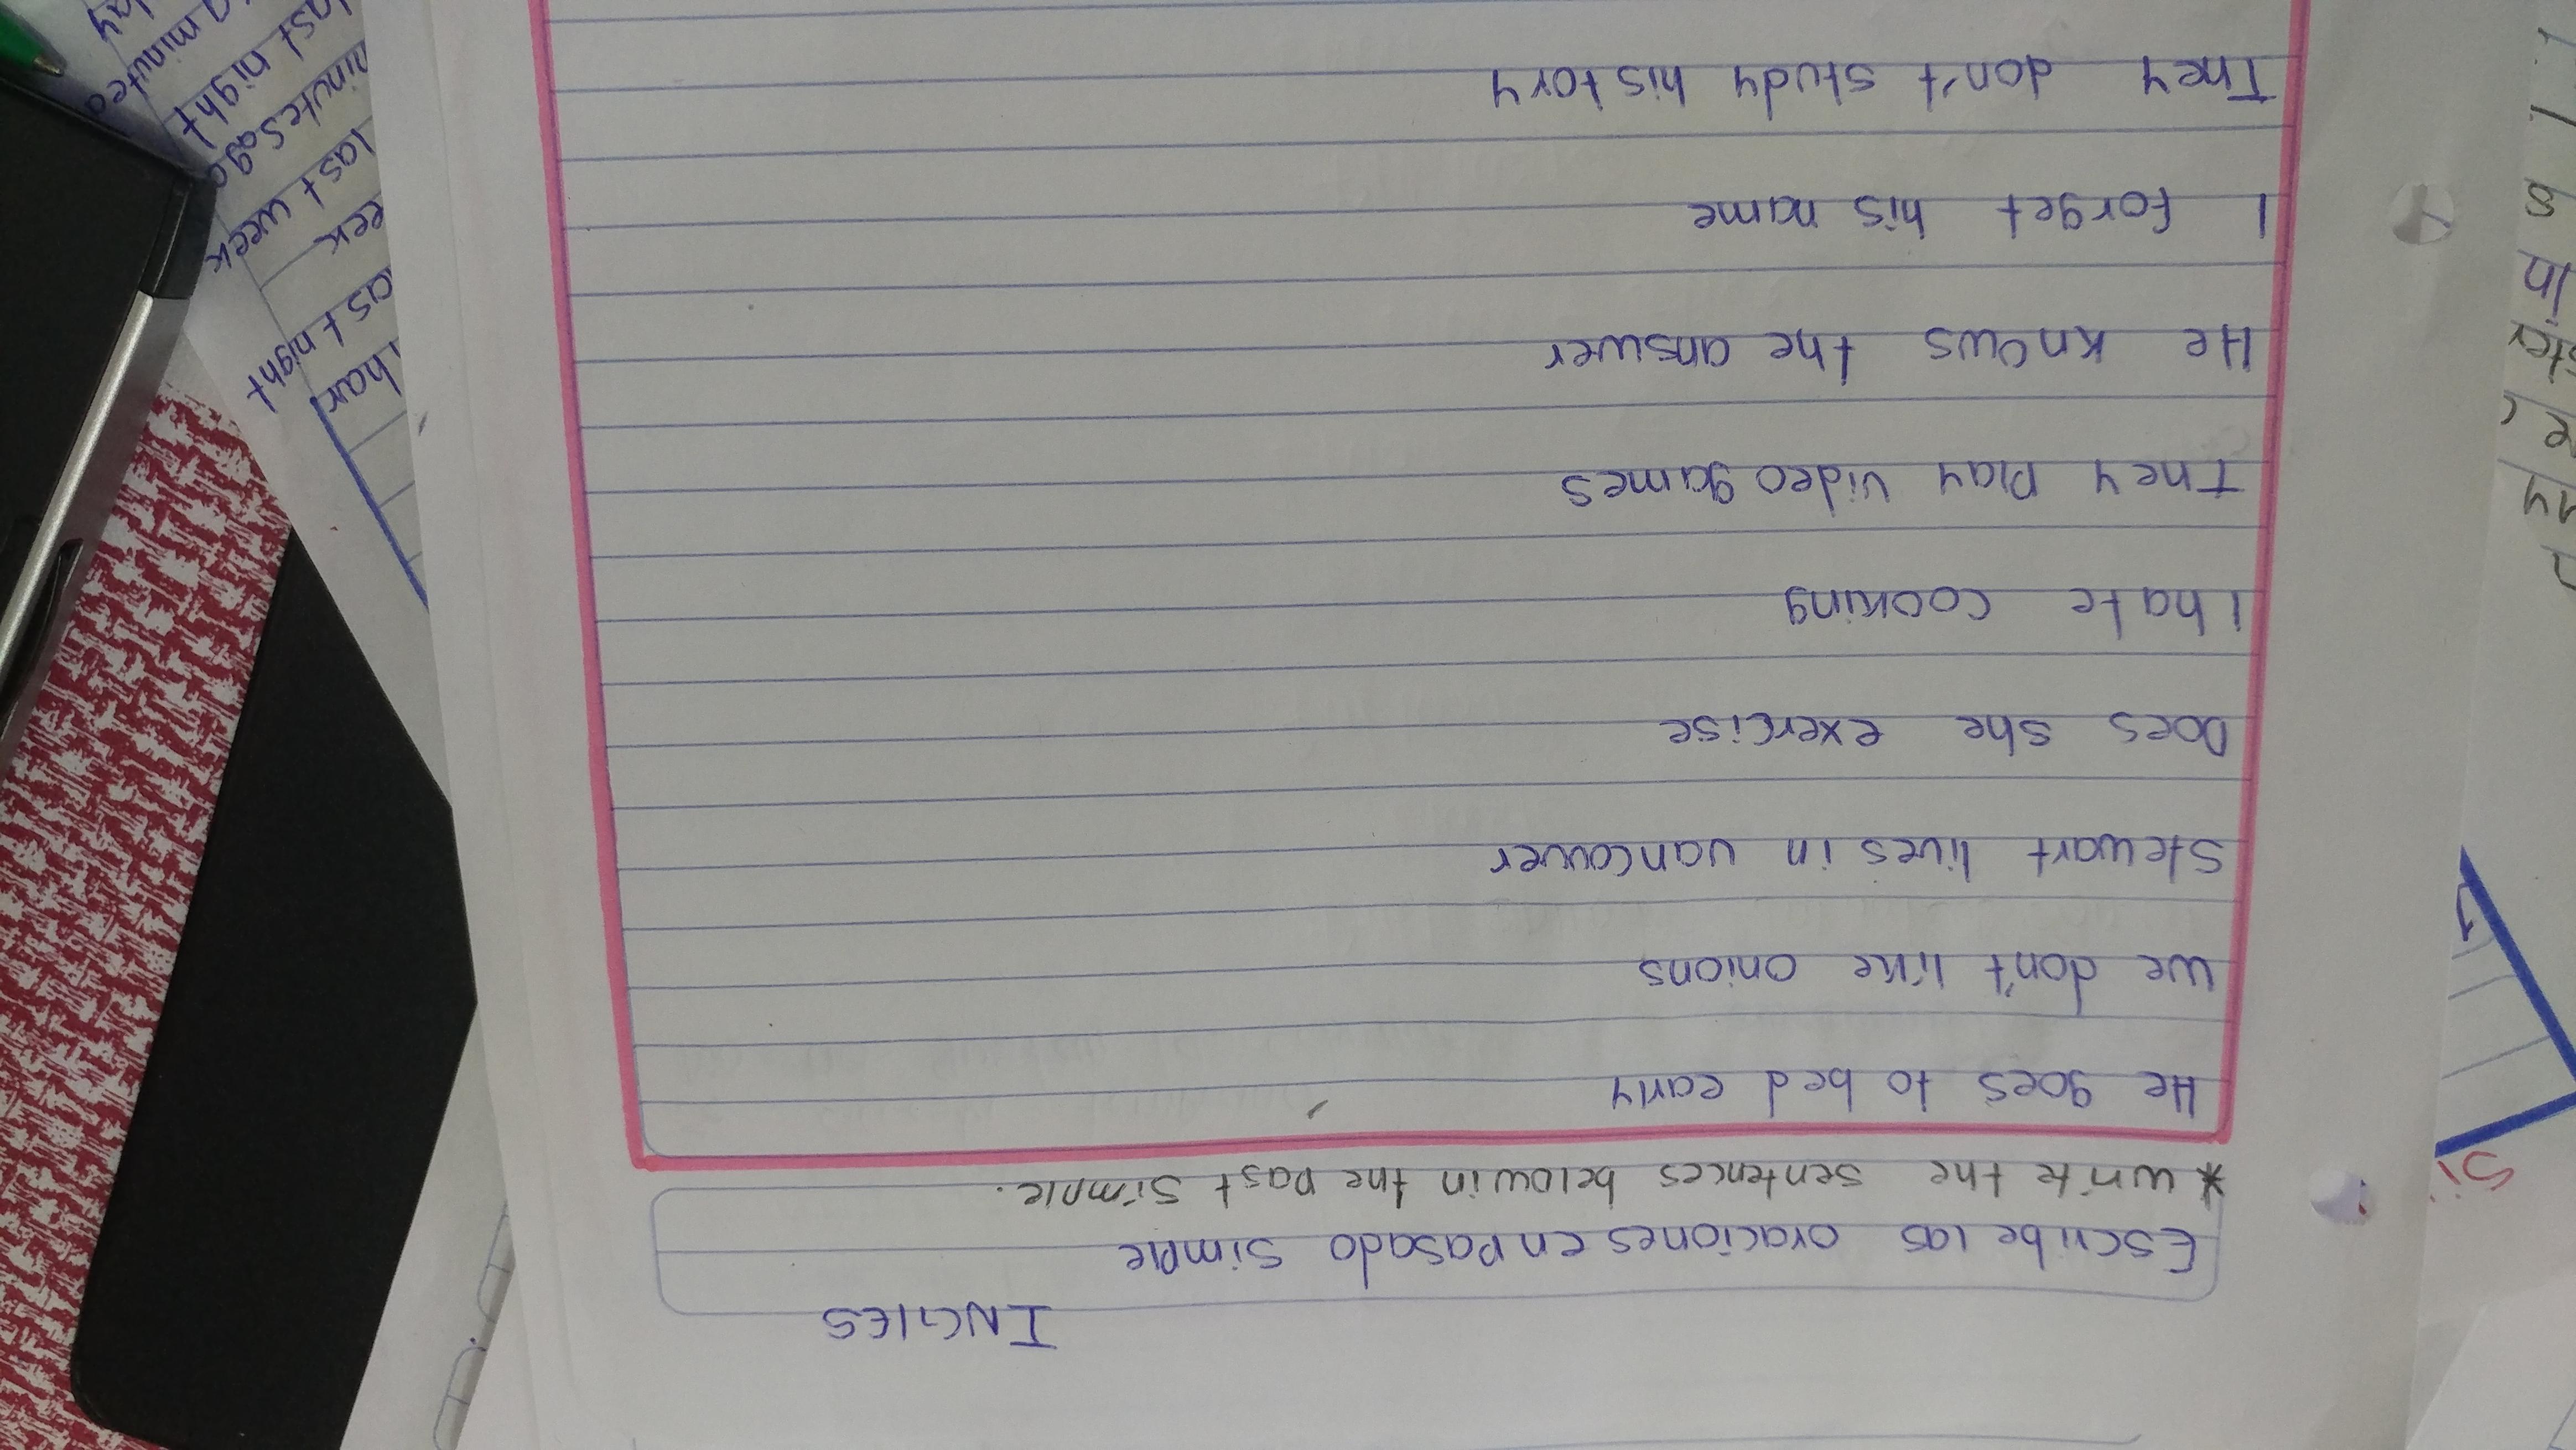 INGLES
Escribe las oraciones en pasado simple
* write the sentences below in the past simple.
He goes to bed early
we don't like onions
Stewart lives in vancouver
Does she exercise
I hate cooking
They play video games
He knows the answer
I forget his name
They don't study history
last night
last week
minutes ago
last night